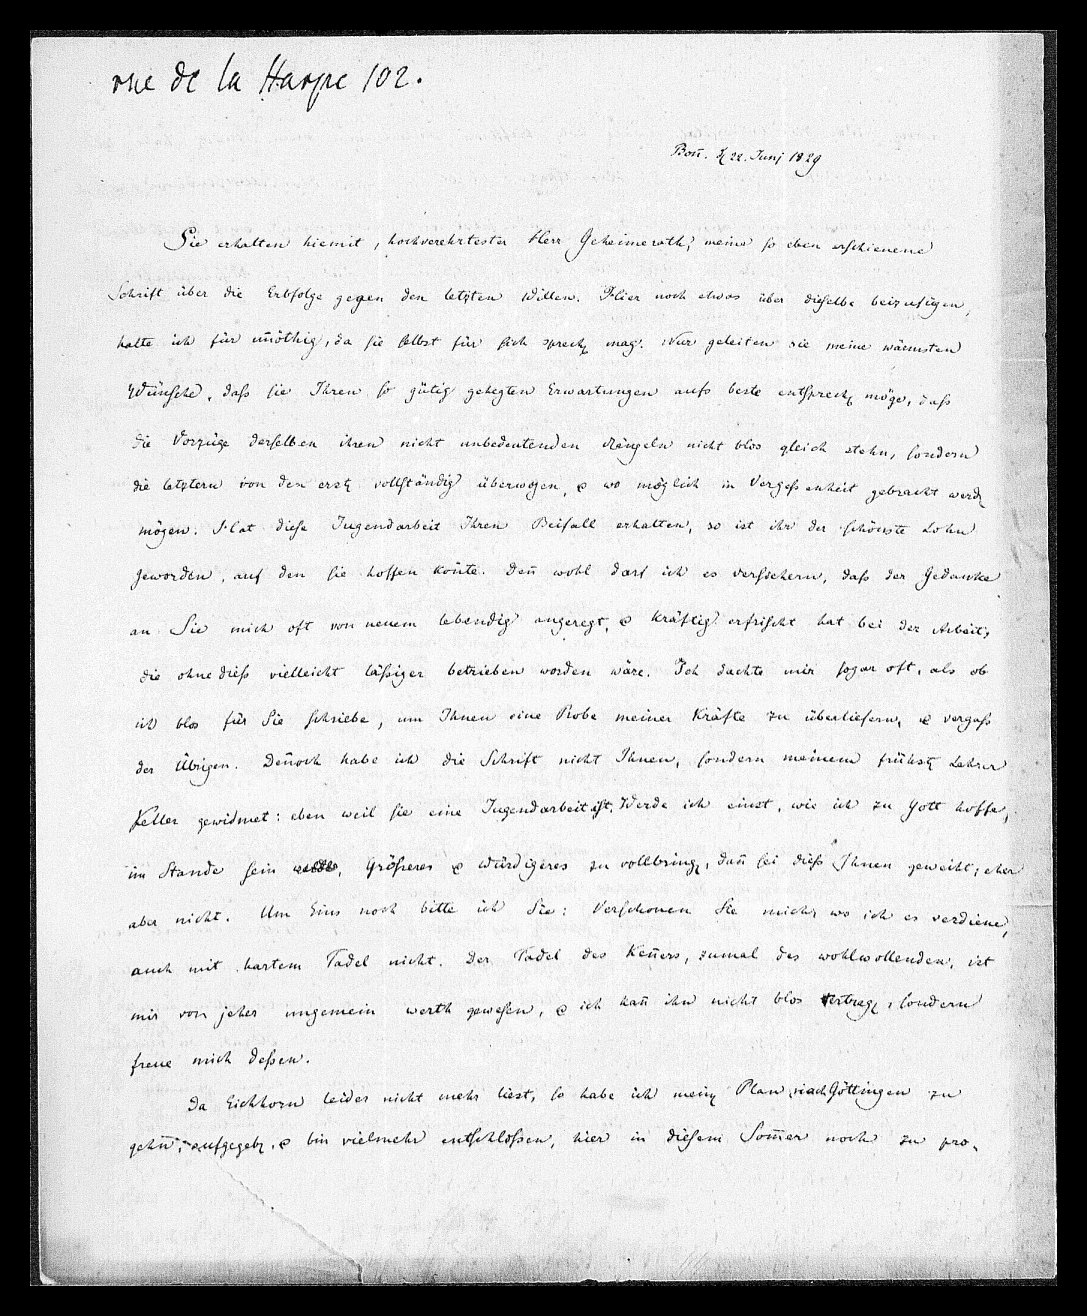 rue de la Harpe 102.
Bon̄. d 22. Junj 1829
Sie erhalten hiemit, hochverehrtester Herr Geheimerath, meine so eben erschienene
Schrift über die Erbfolge gegen den letzten Willen. Hier noch etwas über dieselbe beizufügen,
halte ich für un̄öthig, da sie selbst für sich sprech mag. Nur geleiten sie meine wärmsten
Wünsche, daß sie Ihren so gütig gehegten Erwartungen aufs beste entsprech möge, daß
die Vorzüge derselben ihren nicht unbedeutenden Mängeln nicht blos gleich stehn, sondern
die letztern von den erst vollständig überwogen, & wo möglich in Vergeßenheit gebracht werd
mögen. Hat diese Jugendarbeit Ihren Beifall erhalten, so ist ihr der schönste Lohn
geworden, auf den sie hoffen kon̄te. Den̄ wohl darf ich es versichern, daß der Gedanke
an Sie mich oft von neuem lebendig angeregt, & kräftig erfrischt hat bei der Arbeit,
die ohne dieß vielleicht läßiger betrieben worden wäre. Ich dachte mir sogar oft, als ob
ich blos für Sie schriebe, um Ihnen eine Probe meiner Kräfte zu überliefern, & vergaß
der Übrigen. Den̄och habe ich die Schrift nicht Ihnen, sondern meinem frühst Lehrer
Keller gewidmet: eben weil sie eine Jugendarbeit ist. Werde ich einst, wie ich zu Gott hoffe,
im Stande sein, Größeres & Würdigeres zu vollbring, dan̄ sei dieß Ihnen geweiht; eher
aber nicht. Um Eins noch bitte ich Sie: Verschonen Sie mich, wo ich es verdiene,
auch mit hartem Tadel nicht. Der Tadel des Ken̄ers, zumal des wohlwollenden, ist
mir von jeher ungemein werth gewesen, & ich kan̄ ihn nicht blos ertrag, sondern
freue mich deßen.
Da Eichhorn leider nicht mehr liest, so habe ich mein Plan nach Göttingen zu
gehn̄, aufgegeb, & bin vielmehr entschloßen, hier in diesem Som̄er noch zu pro-